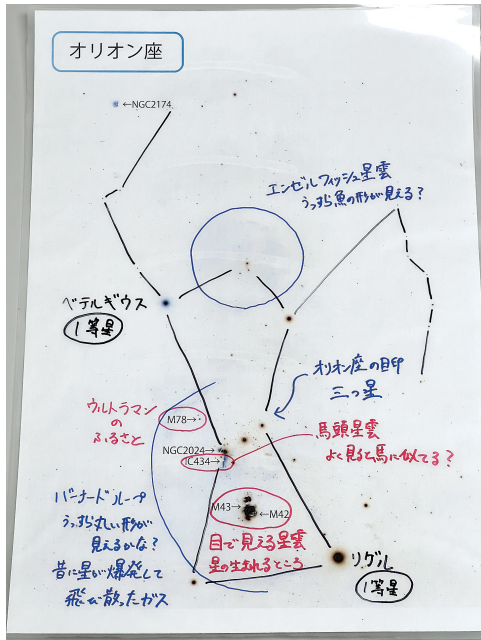 オリオン座
←NGC2174
エンゼルフィッシュ星雲
うっすら魚の形が見える？
ベテルギウス
1等星
オリオン座の目印
三つ星
ウルトラマン
の
ふるさと
M78→
馬頭星雲
よく見ると馬に似てる？
NGC2024→
IC434→
バーナードループ
うっすら丸い形が
見えるかな？
昔に星が爆発して
飛び散ったガス
M43→
←M42
目で見える星雲
星の生まれるところ
リゲル
1等星